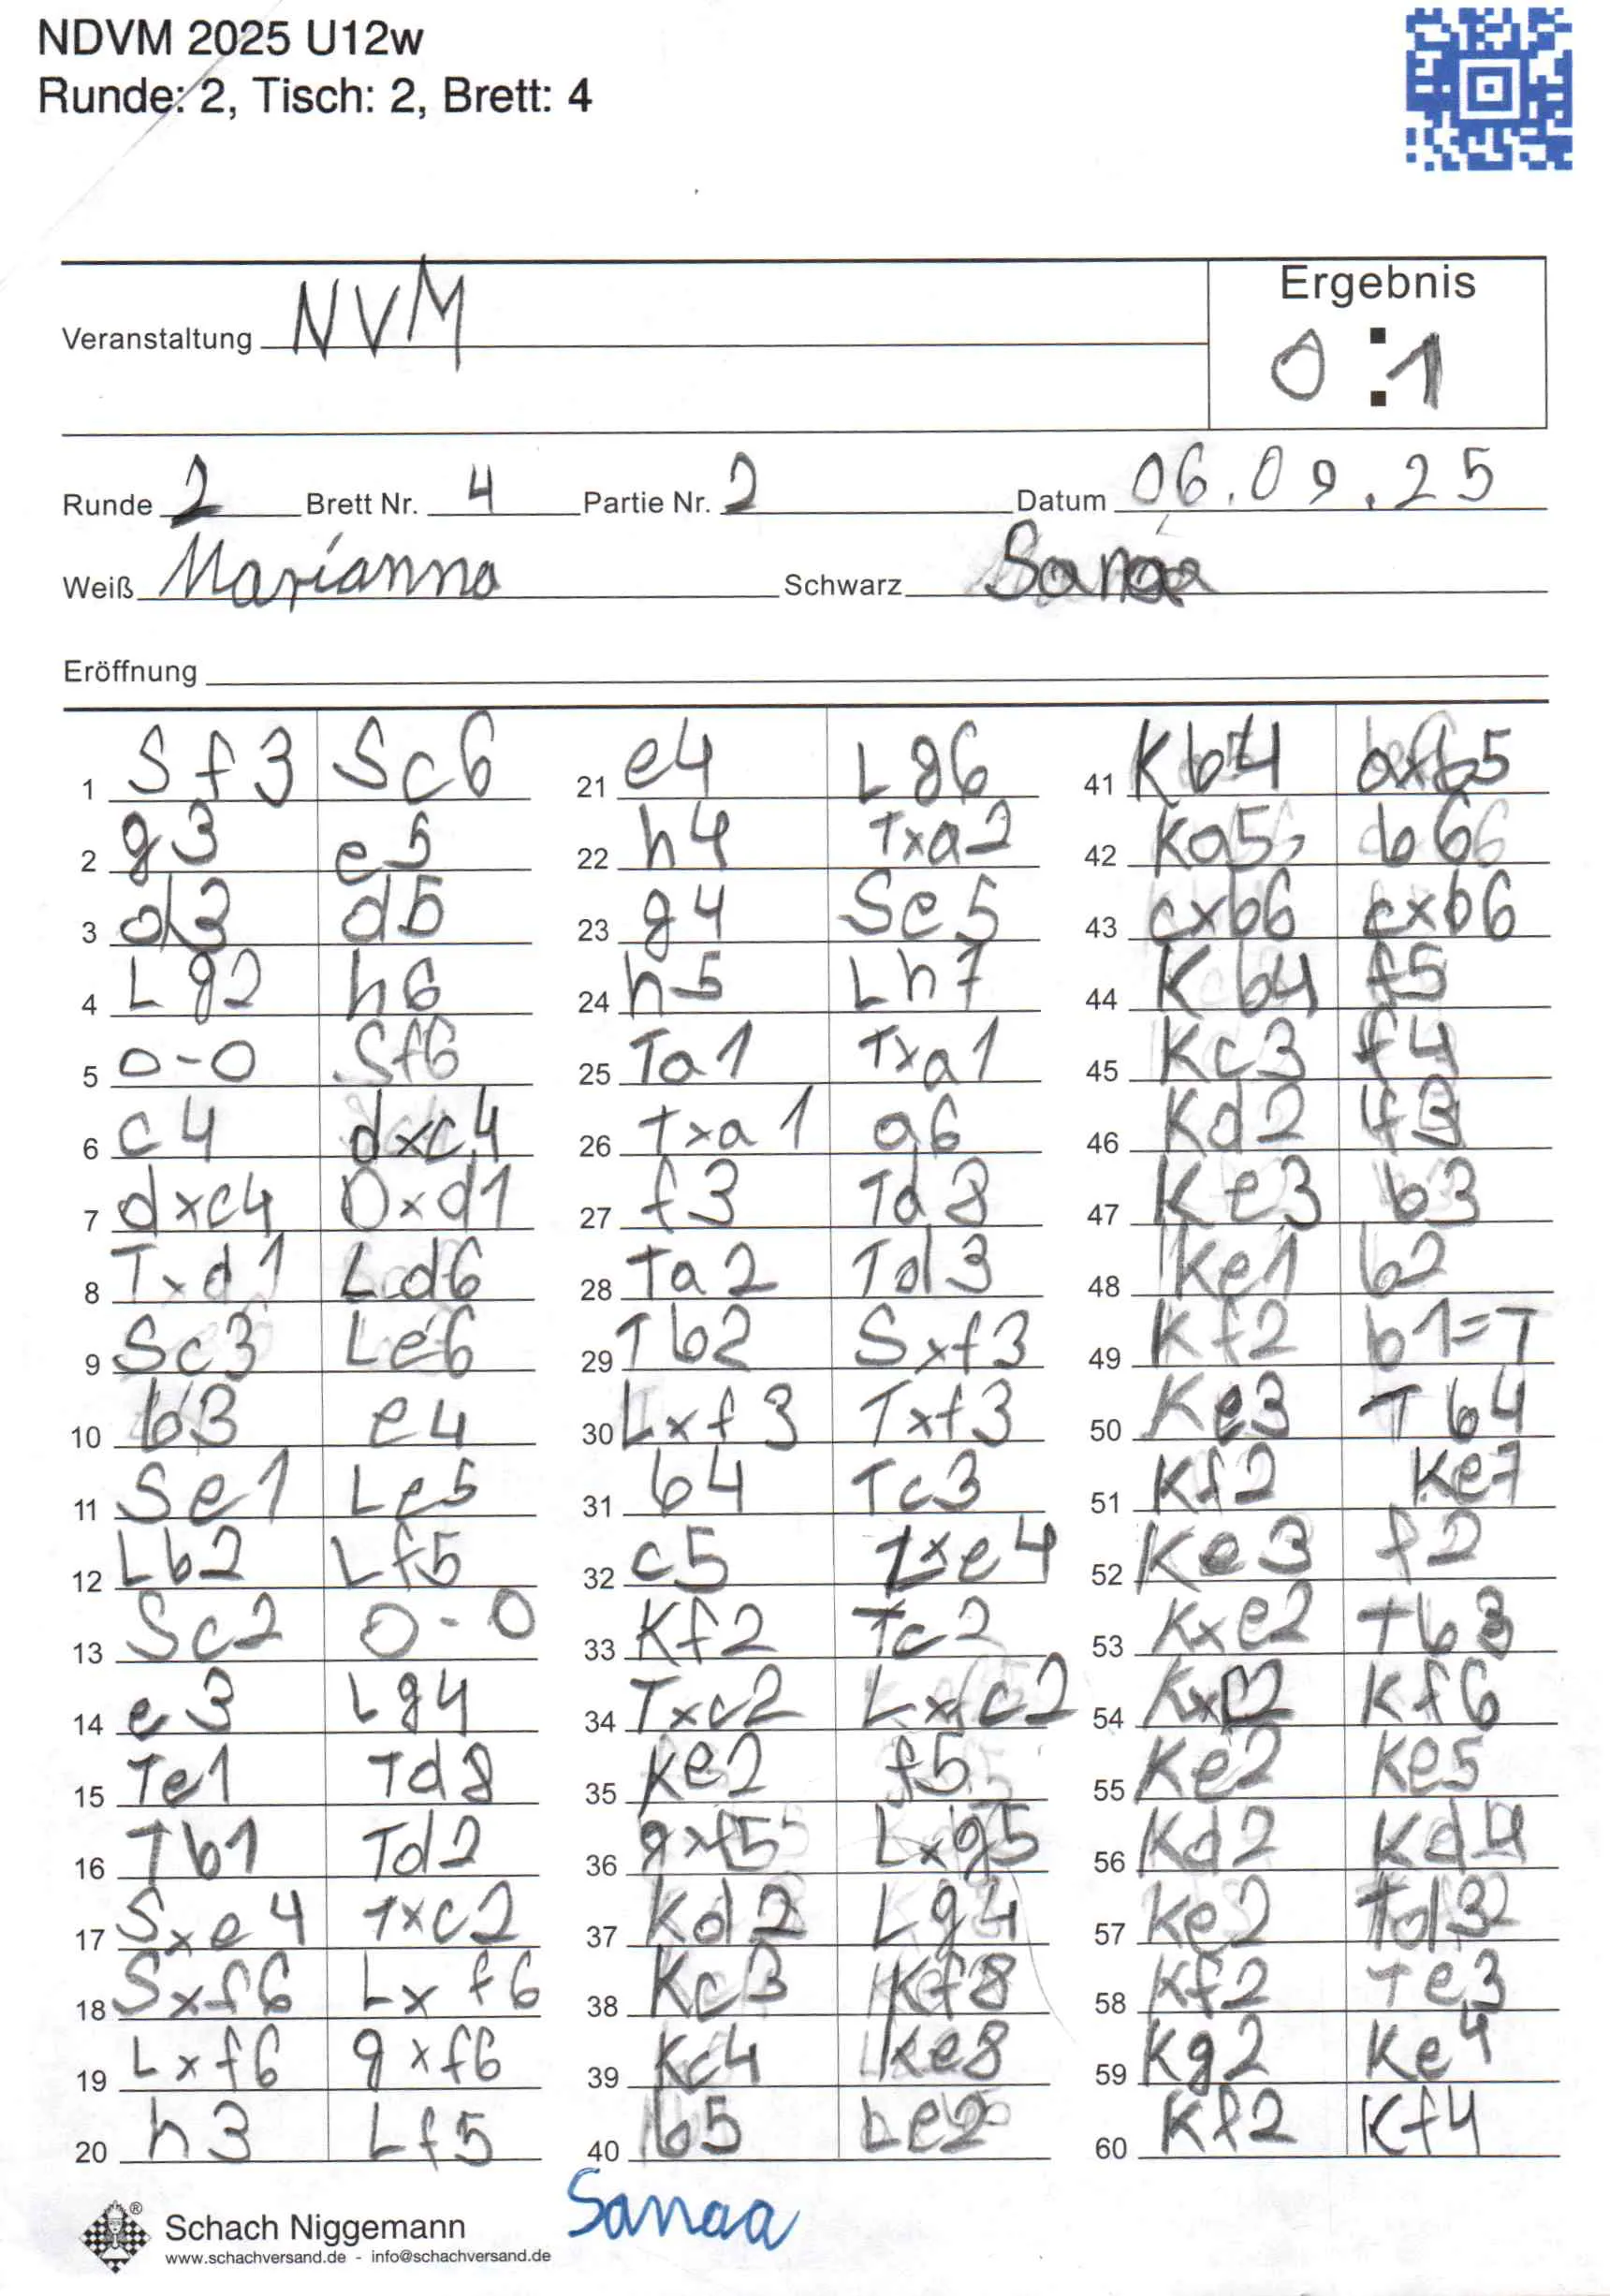 NDVM 2025 U12w
Runde: 2, Tisch: 2, Brett: 4
Ergebnis
Veranstaltung NVM
0:1
Runde 2 Brett Nr. 4 Partie Nr. 2 Datum 06.09.25
Weiß Marianna Schwarz Sanaa
Eröffnung
1 Sf3 Sc6
2 g3 e5
3 d3 d5
4 Lg2 h6
5 0-0 Sf6
6 c4 dxc4
7 dxc4 Dxd1
8 Txd1 Ld6
9 Sc3 Le6
10 b3 e4
11 Se1 Le5
12 Lb2 Lf5
13 Sc2 0-0
14 e3 Lg4
15 Te1 Td8
16 Tb1 Td2
17 Sxe4 Txc2
18 Sxf6 Lxf6
19 Lxf6 gxf6
20 h3 Lf5
21 e4 Lg6
22 h4 Txa2
23 g4 Se5
24 h5 Lh7
25 Ta1 Txa1
26 Txa1 a6
27 f3 Td8
28 Ta2 Td3
29 Tb2 Sxf3
30 Lxf3 Txf3
31 b4 Tc3
32 c5 Lxe4
33 Kf2 Tc2
34 Txc2 Lxc2
35 Ke2 f5
36 gxf5 Lxg5
37 Kd2 Lg4
38 Kc3 Kf8
39 Kc4 Ke8
40 b5 Le2
41 Kb4 axb5
42 Ka5 b6
43 cxb6 cxb6
44 Kb4 f5
45 Kc3 f4
46 Kd2 f3
47 Ke3 b3
48 Ke1 b2
49 Kf2 b1=T
50 Ke3 Tb4
51 Kf2 Ke7
52 Ke3 f2
53 Kxe2 Tb3
54 Kxf2 Kf6
55 Ke2 Ke5
56 Kd2 Kd4
57 Ke2 Td3
58 Kf2 Te3
59 Kg2 Ke4
60 Kf2 Kf4
Schach Niggemann
www.schachversand.de - info@schachversand.de
Sanaa